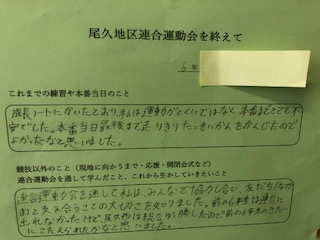 尾久地区連合運動会を終えて
6年
これまでの練習や本番当日のこと
成長ノートにかいたとおり、私は運動がとくいではなく、本番までとても不
安でした。本番当日最後まで走りきりたっせいかんをかんじたので
よかったなと思いました。
競技以外のこと(現地に向かうまで・応援・開閉会式など)
連合運動会を通して学んだこと、これから生かしていきたいこと
連合運動会を通して私は、みんなで協力し合い、友だち(なか
ま)と支え合うことの大切さを知りました。前の6年生は連合に
出れなかったけど、尾久西は総合ゆう勝したので前の6年生のきたい
にこたえられたかなと思いました。